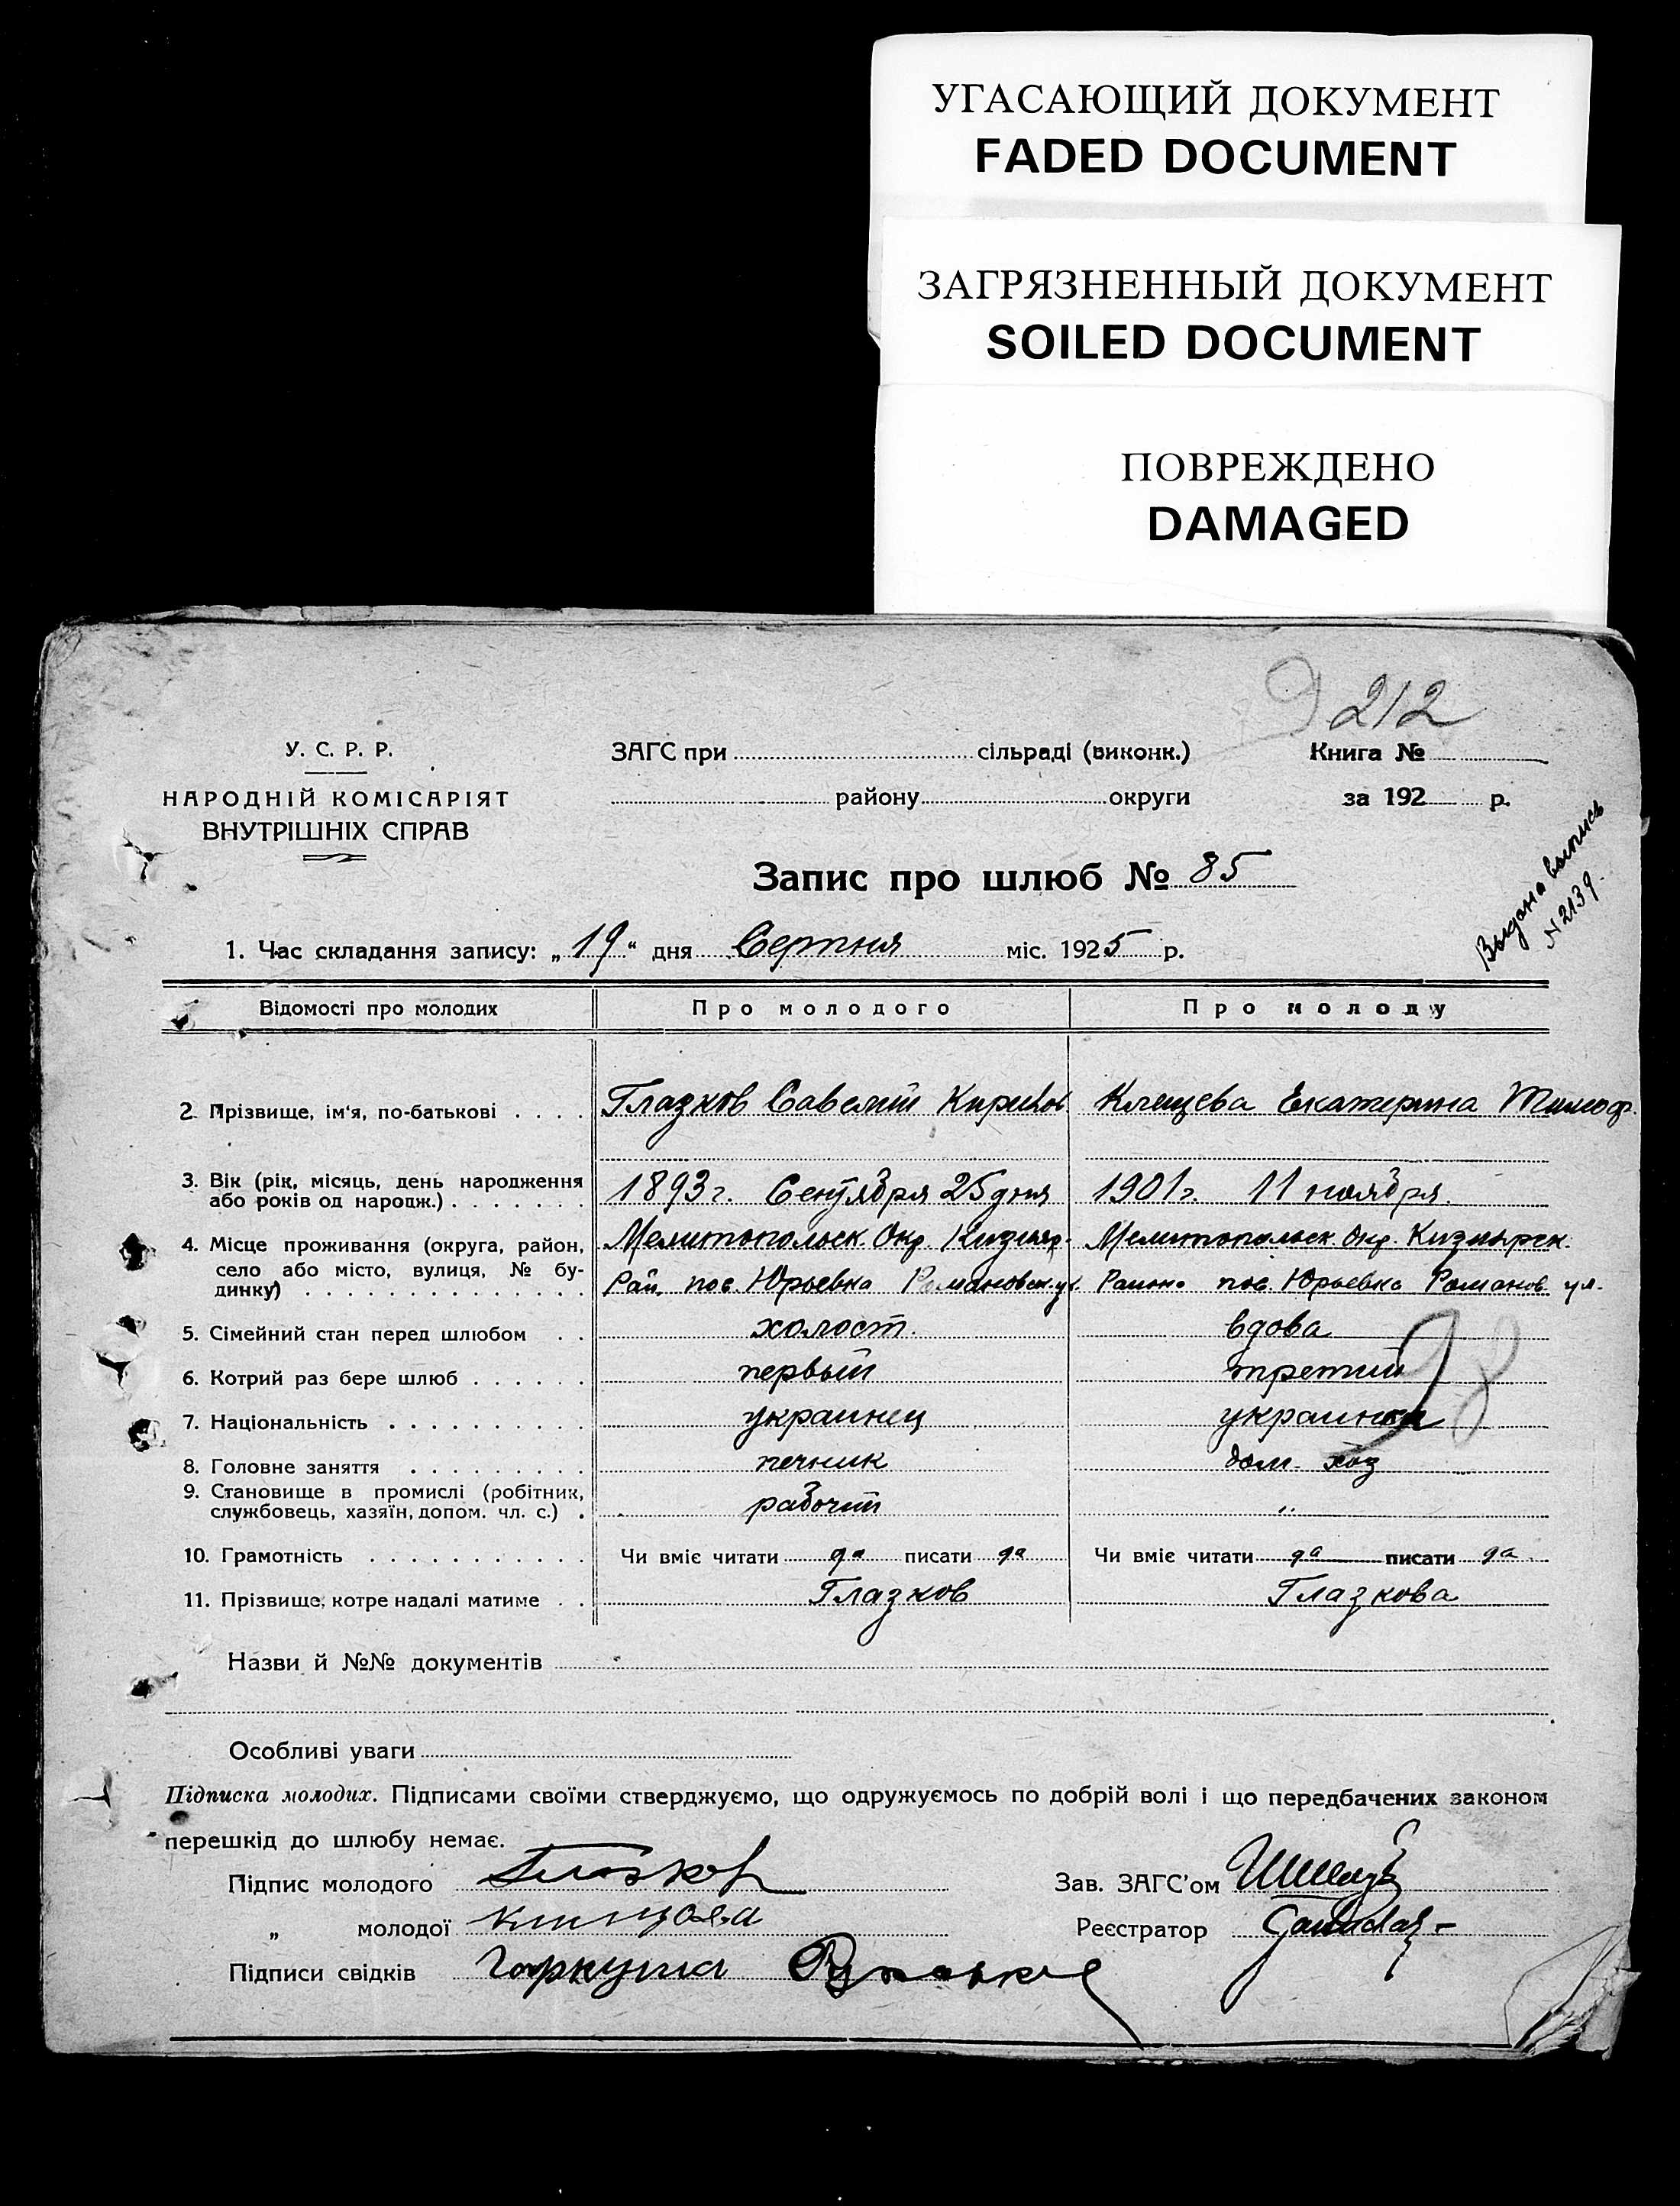 УГАСАЮЩИЙ ДОКУМЕНТ
FADED DOCUMENT
ЗАГРЯЗНЕННЫЙ ДОКУМЕНТ
SOILED DOCUMENT
ПОВРЕЖДЕНО
DAMAGED
212
У. С. Р. Р.
НАРОДНІЙ КОМІСАРІЯТ
ВНУТРІШНІХ СПРАВ
ЗАГС при сільраді (виконк.)
району округи
Книга №
за 192 р.
Выдана выпись
N 2139.
Запис про шлюб № 85
1. Час складання запису: „19“ дня Серпня міс. 1925 р.
Відомості про молодих Про молодого Про молоду
2. Прізвище, ім'я, по-батькові Глазков Савелий Кирилов Клещева Екатерина Тимоф.
3. Вік (рік, місяць, день народження
або років од народж.) 1893 г. Сентября 25 дня 1901 г. 11 ноября.
4. Місце проживання (округа, район, Мелитопольск. Окр. Кизияр. Мелитопольск. Окр. Кизиярск.
село або місто, вулиця, № бу-
динку) Рай. пос. Юрьевка Романовск. ул. Район. пос. Юрьевка Романов. ул.
5. Сімейний стан перед шлюбом холост. вдова
6. Котрий раз бере шлюб первый третий
7. Національність украинец украинка
8. Головне заняття печник дом. хоз
9. Становище в промислі (робітник,
службовець, хазяїн, допом. чл. с.) рабочий "
10. Грамотність Чи вміє читати да писати да Чи вміє читати да писати да
11. Прізвище, котре надалі матиме Глазков Глазкова
98
Назви й №№ документів
Особливі уваги
Підписка молодих. Підписами своїми стверджуємо, що одружуємось по добрій волі і що передбачених законом
перешкід до шлюбу немає.
Підпис молодого Глазков Зав. ЗАГС'ом
„ молодої Клищова Реєстратор
Підписи свідків Гаркуша